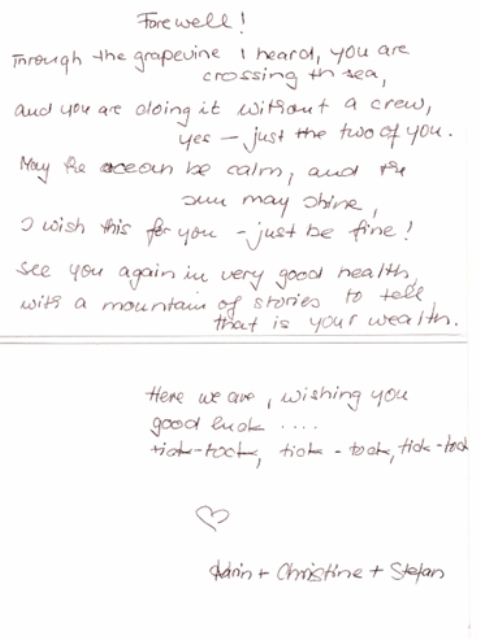 Farewell!
Through the grapevine I heard, you are
crossing th sea,
and you are doing it without a crew,
yes – just the two of you.
May the ocean be calm, and the
sun may shine,
I wish this for you – just be fine!
See you again in very good health,
with a mountain of stories to tell,
that is your wealth.
Here we are, wishing you
good luck ....
tick-tock, tick-tock, tick-tock
Christine + Stefan